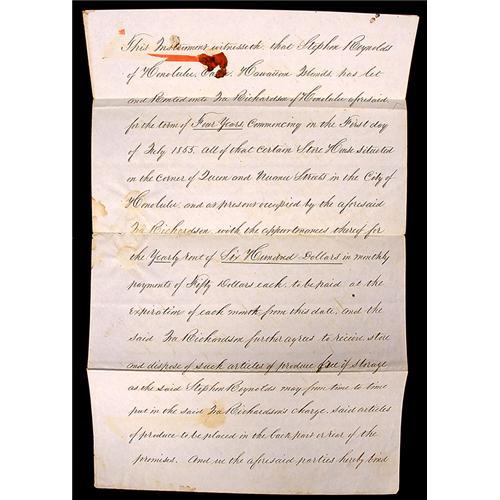 This Instrument witnesseth that Stephen Reynolds
of Honolulu, Oahu, Hawaiian Islands, has let
and Rented unto Ira Richardson of Honolulu aforesaid
for the term of Four Years, Commencing on the First day
of July 1855. All of that certain Store House situated
on the corner of Queen and Nuuanu Streets in the City of
Honolulu, and as present occupied by the aforesaid
Ira Richardson with the appurtenances thereof for
the Yearly rent of Six Hundred Dollars in monthly
payments of Fifty Dollars each to be paid at the
expiration of each month from this date, and the
said Ira Richardson further agrees to receive store
and dispose of such articles of produce free of storage
as the said Stephen Reynolds may from time to time
put in the said Ira Richardson's Charge said articles
of produce to be placed in the back part or rear of the
premises. And we the aforesaid parties hereby bind